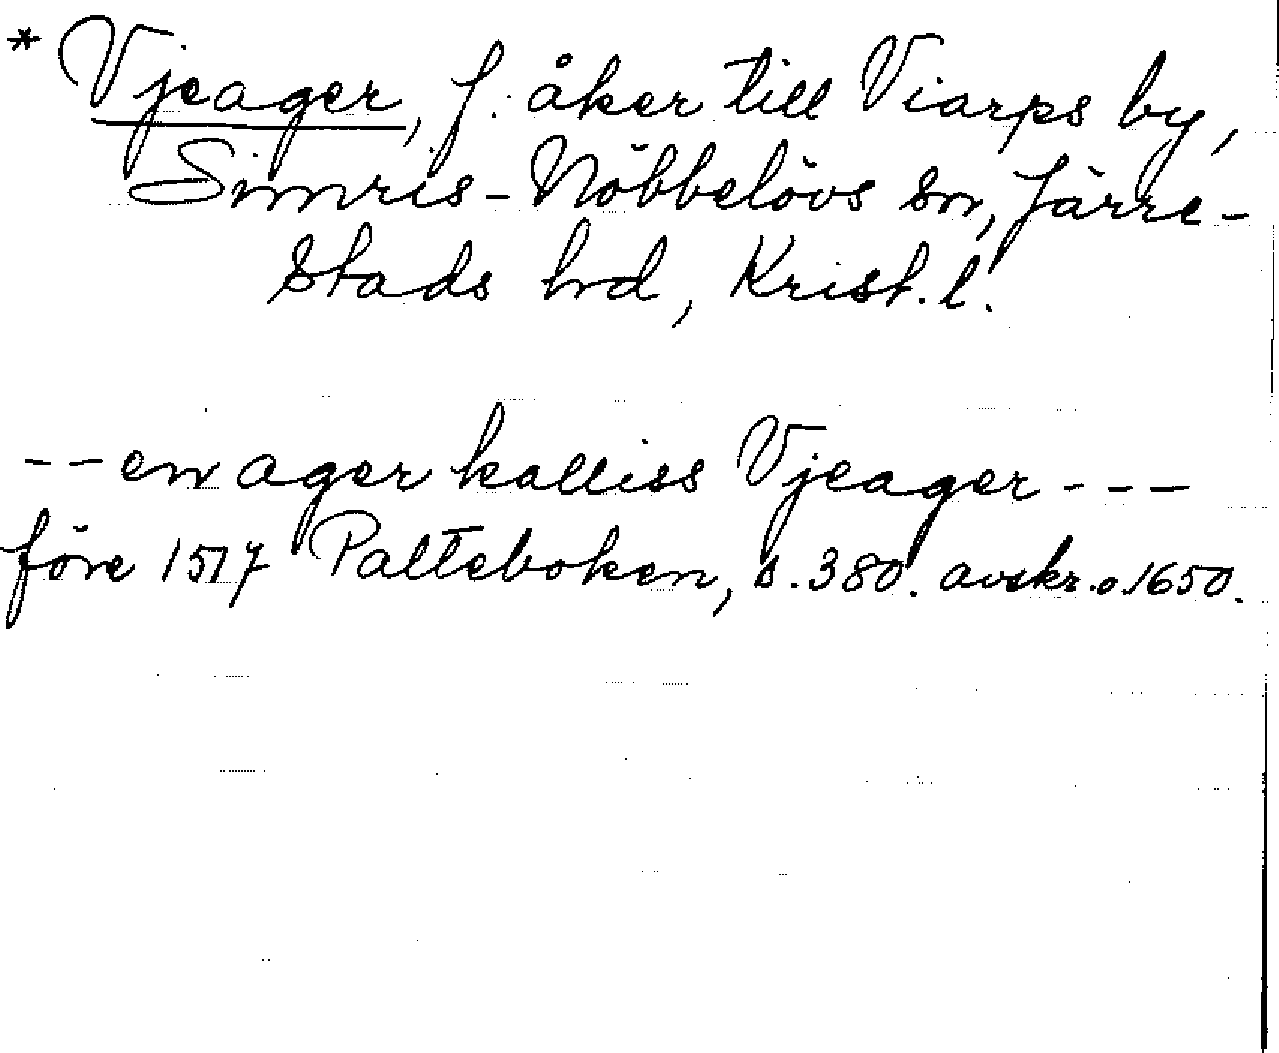 * Vjeager, f. åker till Viarps by,
Simris-Nöbbelövs sn, Järre-
stads hd, Krist. l.
-- en ager kalliss Vjeager ---
före 1517 Palteboken, s. 380. avskr. o. 1650.